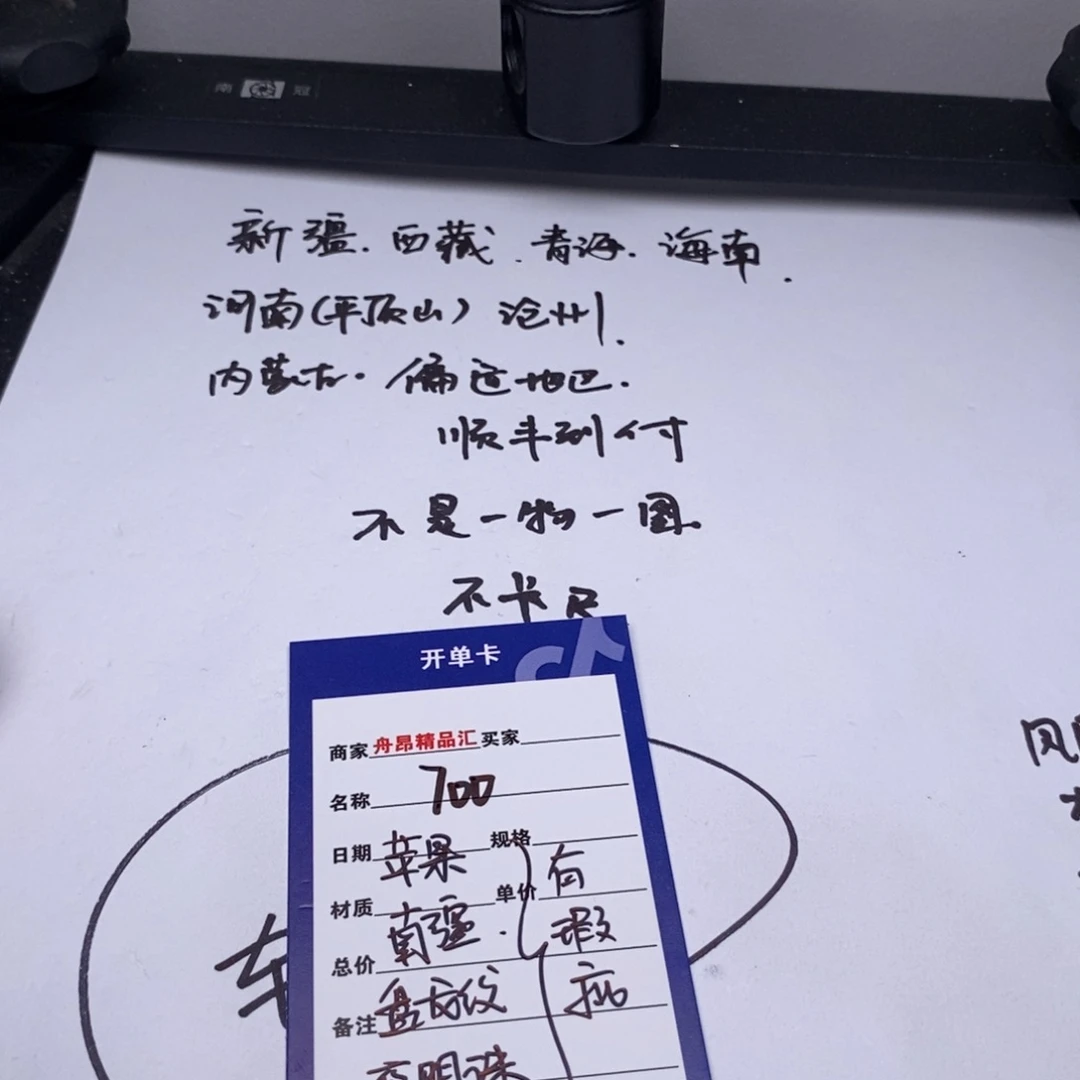 南 冠
新疆.西藏.青海.海南.
河南(平顶山)沧州.
内蒙古.偏远地区.
顺丰到付
不是一物一图.
不卡尺
开单卡
商家 舟昂精品汇 买家
名称 700
日期 苹果 规格
材质 南疆. 单价 有
总价 瑕
备注 盘龙纹 疵
夜明珠
车
风